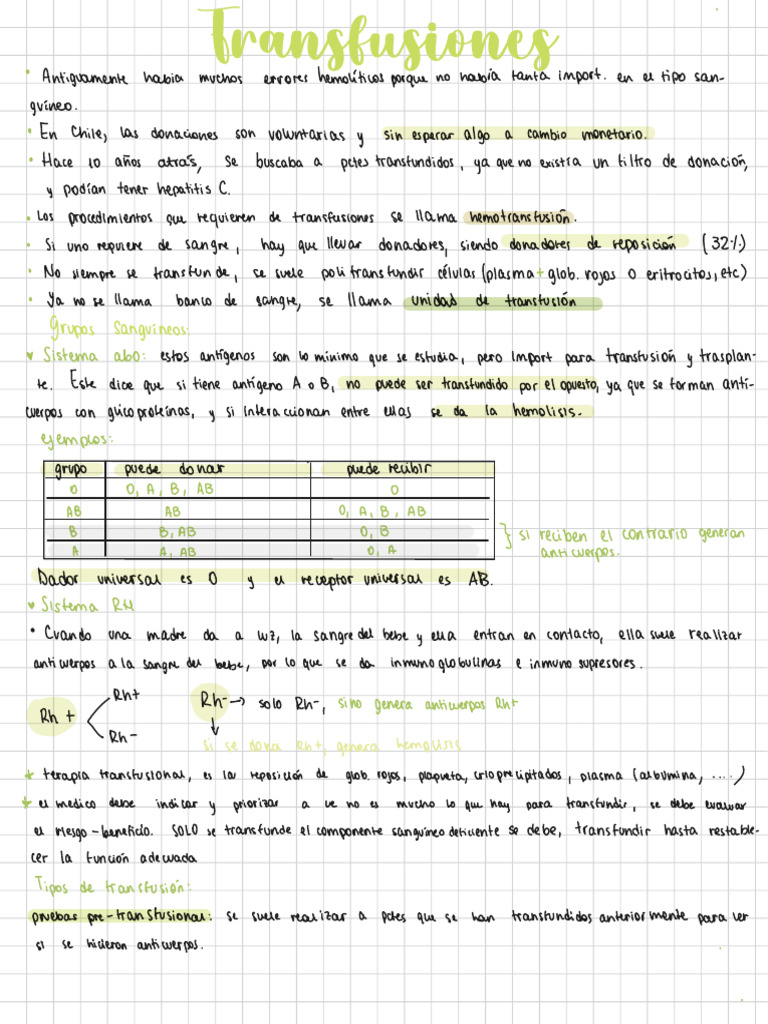 Transfusiones
• Antiguamente habia muchos errores hemolíticos porque no había tanta import. en el tipo san-
guíneo.
• En Chile, las donaciones son voluntarias y sin esperar algo a cambio monetario.
• Hace 10 años atrás, se buscaba a pctes transfundidos, ya que no existía un filtro de donación,
y podían tener hepatitis C.
• Los procedimientos que requieren de transfusiones se llama hemotransfusión.
• Si uno requiere de sangre, hay que llevar donadores, siendo donadores de reposición (32%)
• No siempre se transfunde, se suele politransfundir células (plasma + glob. rojos o eritrocitos, etc)
• Ya no se llama banco de sangre, se llama unidas de transfusión
Grupos Sanguíneos:
♥ Sistema abo: estos antígenos son lo mínimo que se estudia, pero import para transfusión y trasplan-
te. Este dice que si tiene antígeno A o B, no puede ser transfundido por el opuesto, ya que se forman antí-
cuerpos con glicoproteínas, y si interaccionan entre ellas se da la hemolisis.
ejemplos:
grupo puede donar puede recibir
O O, A, B, AB O
AB AB O, A, B, AB
B B, AB O, B
A A, AB O, A
} si reciben el contrario generan
anticuerpos.
Dador universal es O y el receptor universal es AB.
♥ Sistema RH
• Cuando una madre da a luz, la sangre del bebe y ella entran en contacto, ella suele realizar
anticuerpos a la sangre del bebe, por lo que se da inmunoglobulinas e inmuno supresores.
Rh + < Rh+
Rh-
Rh- → solo Rh-, sino genera anticuerpos Rh+
↓
si se dona Rh+, genera hemolisis
* terapia transfusional, es la reposición de glob. rojos, plaqueta, crioprecipitados, plasma (albumina, ....)
* el medico debe indicar y priorizar a ve no es mucho lo que hay para transfundir, se debe evaluar
el riesgo-beneficio. SOLO se transfunde el componente sanguíneo deficiente se debe, transfundir hasta restable-
cer la función adecuada
Tipos de transfusión:
pruebas pre-transfusional: se suele realizar a pctes que se han transfundidos anteriormente para ver
si se hicieron anticuerpos.